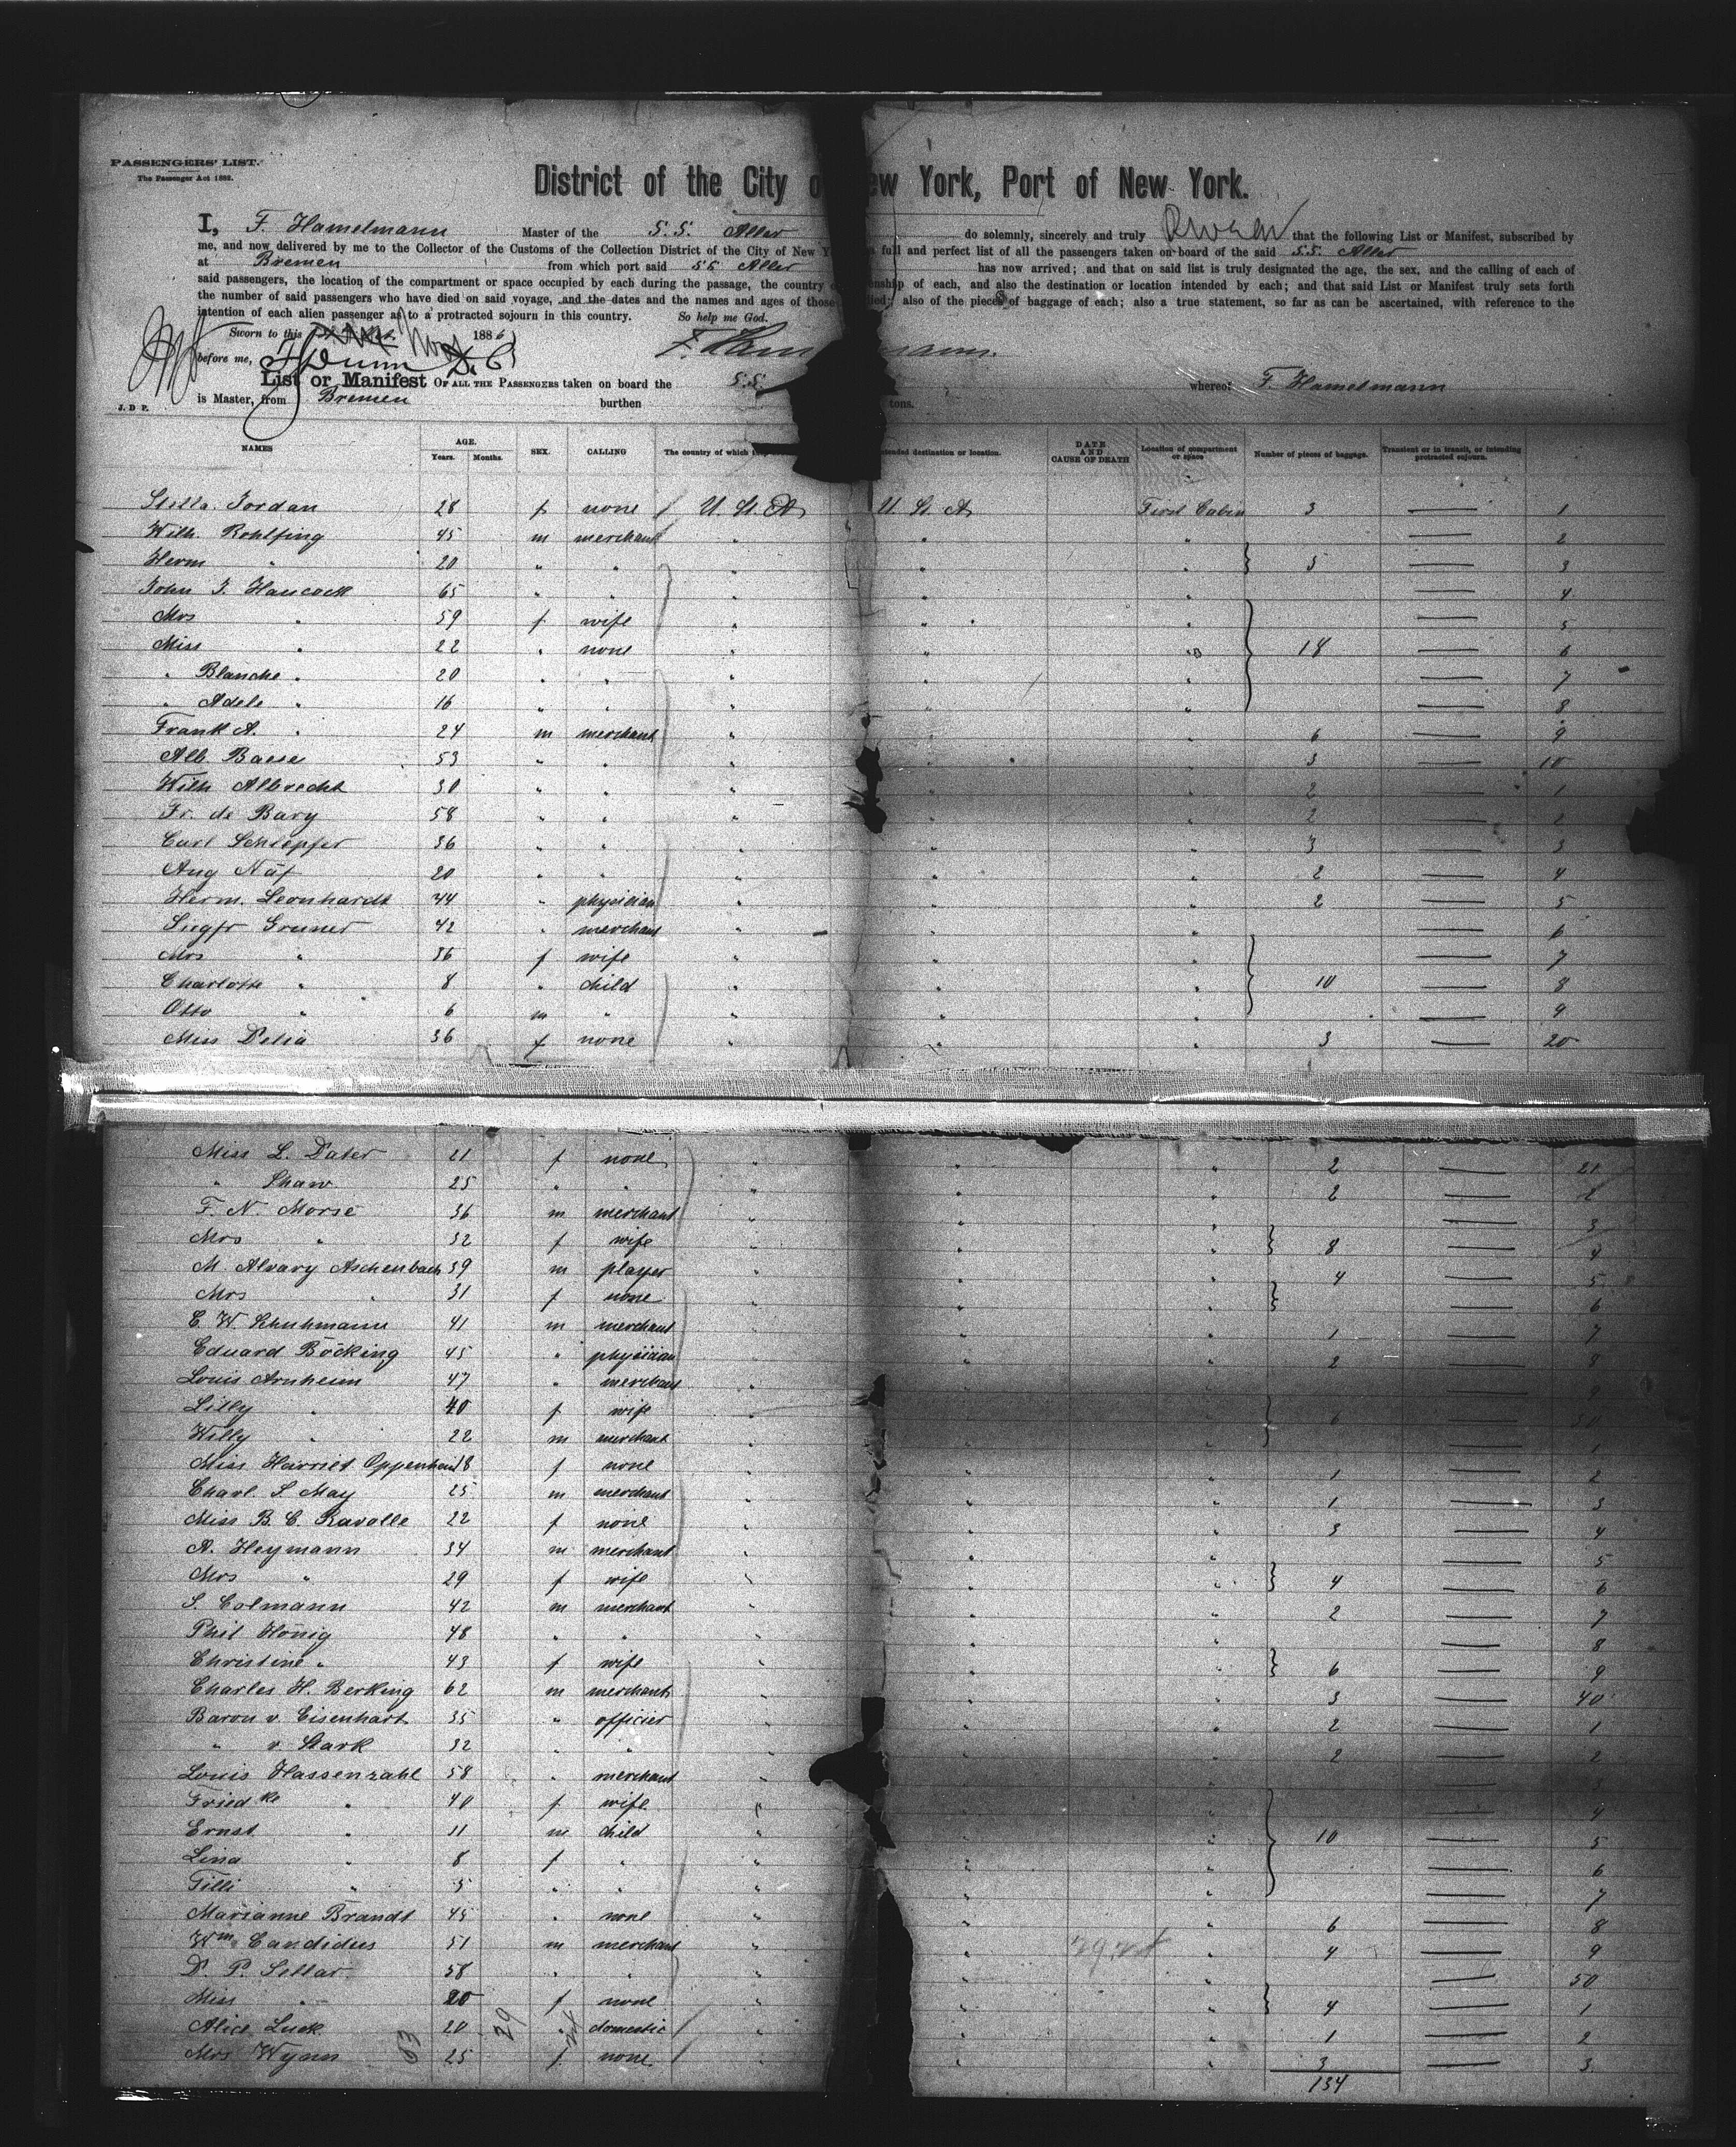 PASSENGERS' LIST.
The Passenger Act 1882.
District of the City o ew York, Port of New York.
I, F. Hamelmann Master of the S.S. Aller do solemnly, sincerely and truly swear that the following List or Manifest, subscribed by
me, and now delivered by me to the Collector of the Customs of the Collection District of the City of New Y full and perfect list of all the passengers taken on board of the said S.S. Aller
at Bremen from which port said SS Aller has now arrived; and that on said list is truly designated the age, the sex, and the calling of each of
said passengers, the location of the compartment or space occupied by each during the passage, the country enship of each, and also the destination or location intended by each; and that said List or Manifest truly sets forth
the number of said passengers who have died on said voyage, and the dates and the names and ages of those died; also of the pieces of baggage of each; also a true statement, so far as can be ascertained, with reference to the
intention of each alien passenger as to a protracted sojourn in this country. So help me God.
Sworn to this Nov 1886
before me, F. Ham mann.
List or Manifest OF ALL THE PASSENGERS taken on board the S.S. whereof F. Hamelmann
is Master, from Bremen burthen tons.
J. D. P.
NAMES AGE. Years. Months. SEX. CALLING The country of which ntended destination or location. DATE AND CAUSE OF DEATH Location of compartment or space Number of pieces of baggage. Transient or in transit, or intending protracted sojourn.
Stella Jordan 28 f none U. St. A U. St. A First Cabin 3 — 1
Wilh. Rohlfing 45 m merchant " " " — 2
Herm " 20 " " " " " 5 — 3
John J. Hancock 65 " " " " " — 4
Mrs " 59 f wife " " " — 5
Miss " 22 " none " " " 18 — 6
" Blanche " 20 " " " " " — 7
" Adele " 16 " " " " " — 8
Frank A. " 24 m merchant " " " 6 — 9
Alb. Baese 53 " " " " " 3 — 10
Wilh Albrecht 30 " " " " " 2 — 1
Fr. de Bary 58 " " " " " 2 — 2
Carl Schlepfer 36 " " " " " 3 — 3
Aug Näf 20 " " " " " 2 — 4
Herm. Leonhardt 44 " physician " " " 2 — 5
Siegfr Gruner 42 " merchant " " " — 6
Mrs " 36 f wife " " " — 7
Charlotte " 8 " child " " " 10 — 8
Otto " 6 m " " " " — 9
Miss Delia 36 f none " " " 3 — 20
Miss L. Dater 21 f none " " " 2 — 21
" Shaw 25 " " " " " 2 — 2
F. N. Morse 36 m merchant " " " — 3
Mrs " 32 f wife " " " 8 — 4
M. Alvary Aschenbach 39 m player " " " 4 — 5
Mrs " 31 f none " " " — 6
E. W. Schuhmann 41 m merchant " " " 1 — 7
Eduard Böcking 45 " physician " " " 2 — 8
Louis Arnheim 47 " merchant " " " — 9
Lilly " 40 f wife " " " 6 — 30
Willy " 22 m merchant " " " — 1
Miss Harriet Oppenheim 18 f none " " " 1 — 2
Charl. S. May 25 m merchant " " " 1 — 3
Miss B. C. Ravolle 22 f none " " " 3 — 4
A. Heymann 34 m merchant " " " — 5
Mrs " 29 f wife " " " 4 — 6
S. Colmann 42 m merchant " " " 2 — 7
Phil Hönig 48 " " " " " — 8
Christine " 43 f wife " " " 6 — 9
Charles H. Berking 62 m merchant " " " 3 — 40
Baron v. Eisenhart 35 " officier " " " 2 — 1
" v. Stark 32 " " " " " 2 — 2
Louis Hassenzahl 58 " merchant " " " — 3
Friedke " 40 f wife " " " — 4
Ernst " 11 m child " " " 10 — 5
Lina " 8 f " " " " — 6
Tilli " 5 " " " " " — 7
Marianne Brandt 45 " none " " " 6 — 8
Wm. Candidus 51 m merchant " " " 4 — 9
D. P. Sellar 58 " " " " " — 50
Miss " 20 f none " " " 4 — 1
Alice Luck 20 " domestic " " " 1 — 2
Mrs Wynn 25 f none " " " 3 — 3
134